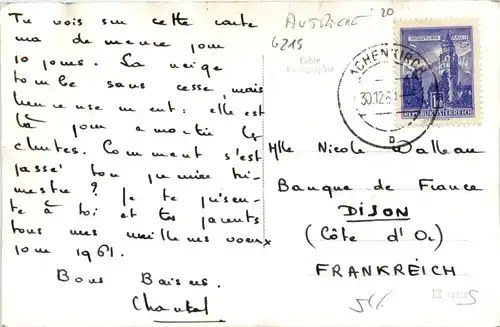 Tu vois sur cette carte
ma demeure pour
10 jours. La neige
tombe sans cesse, mais
heureusement : elle est
là pour amortir les
chutes. Comment s'est
passé ton premier tri-
mestre ? Je te présen-
te à toi et tes parents
tous mes meilleurs voeux
pour 1961.
Bons Baisers.
Chantal
AUTRICHE 20
6215
Echte
Photographie
ACHENKIRCH
30.12.60
b
REPUBLIK ÖSTERREICH
Mlle Nicole Walleau
Banque de France
DIJON
(Côte d'Or)
FRANKREICH